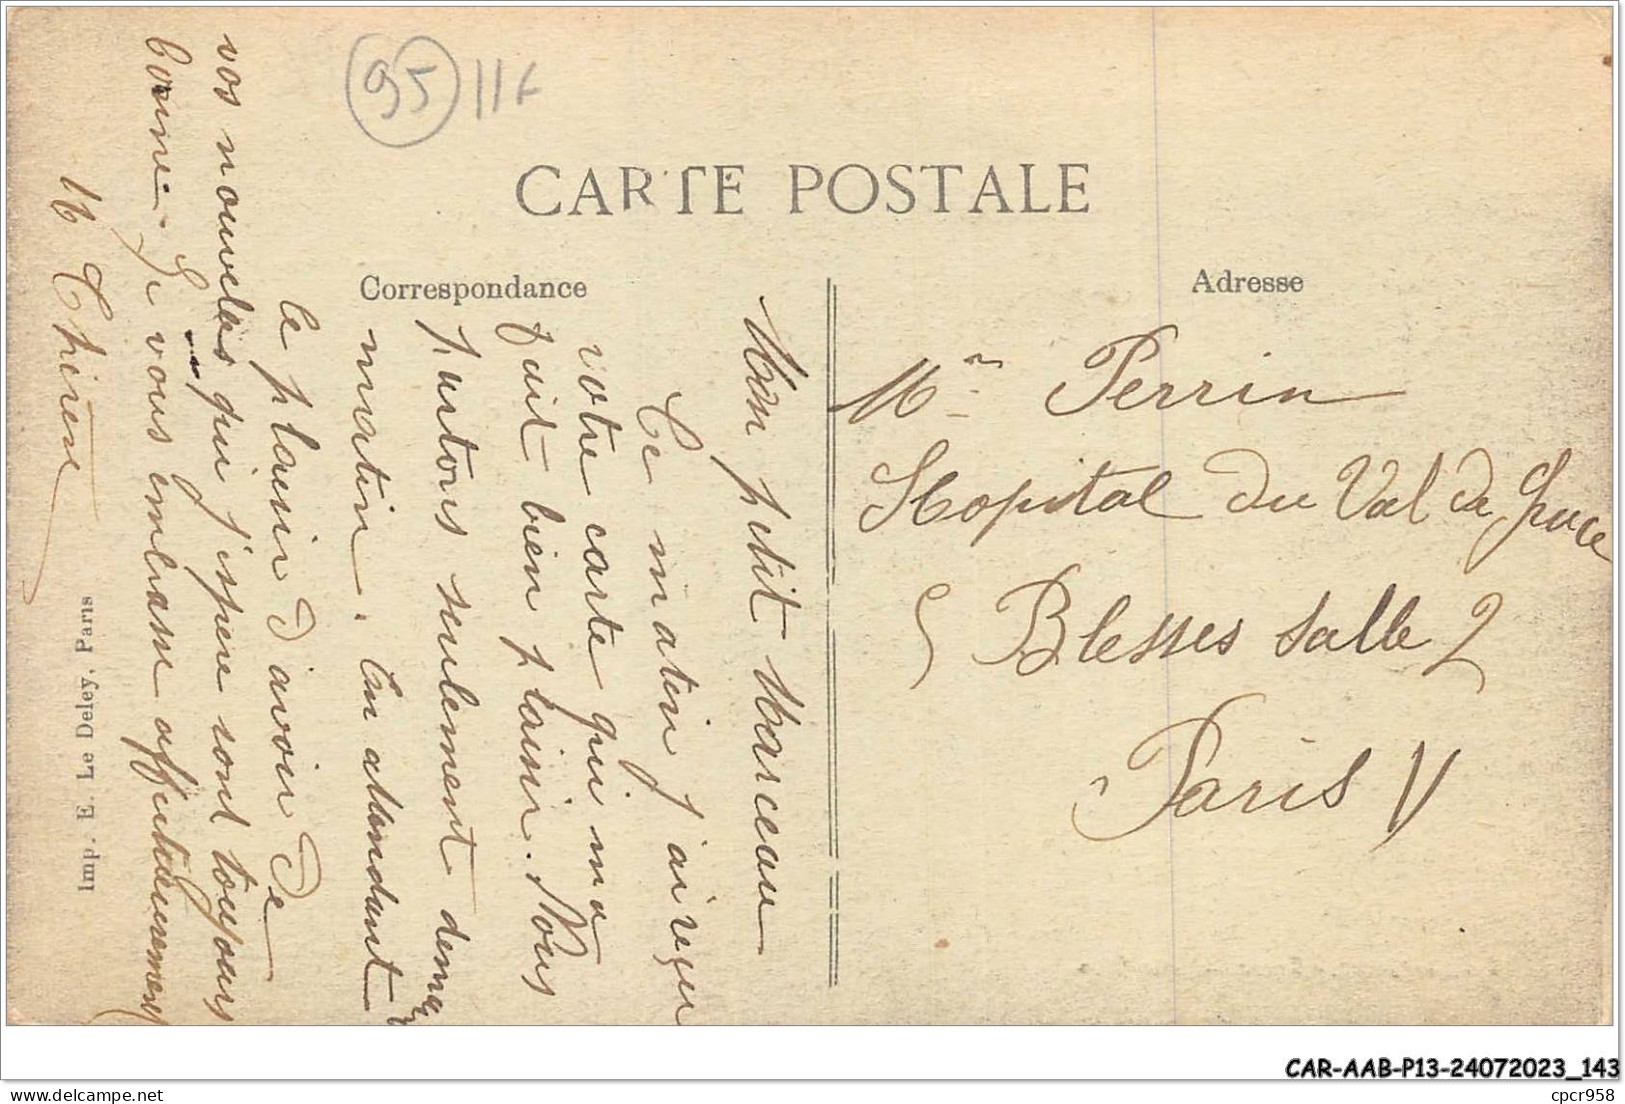 95 11f
CARTE POSTALE
Correspondance
Adresse
Mon petit Marceau
Ce matin j'ai reçu
votre carte qui m'a
fait bien plaisir. Nous
partons seulement demain
matin. En attendant
le plaisir d'avoir de
vos nouvelles qui j'espère sont toujours
bonne. Je vous embrasse affectueusement
M Thirese
Mr Perrin
Hopital du Val de Grace
5 Blessés Salle 2
Paris V
Imp. E. Le Deley, Paris
CAR-AAB-P13-24072023_143
cpcr958